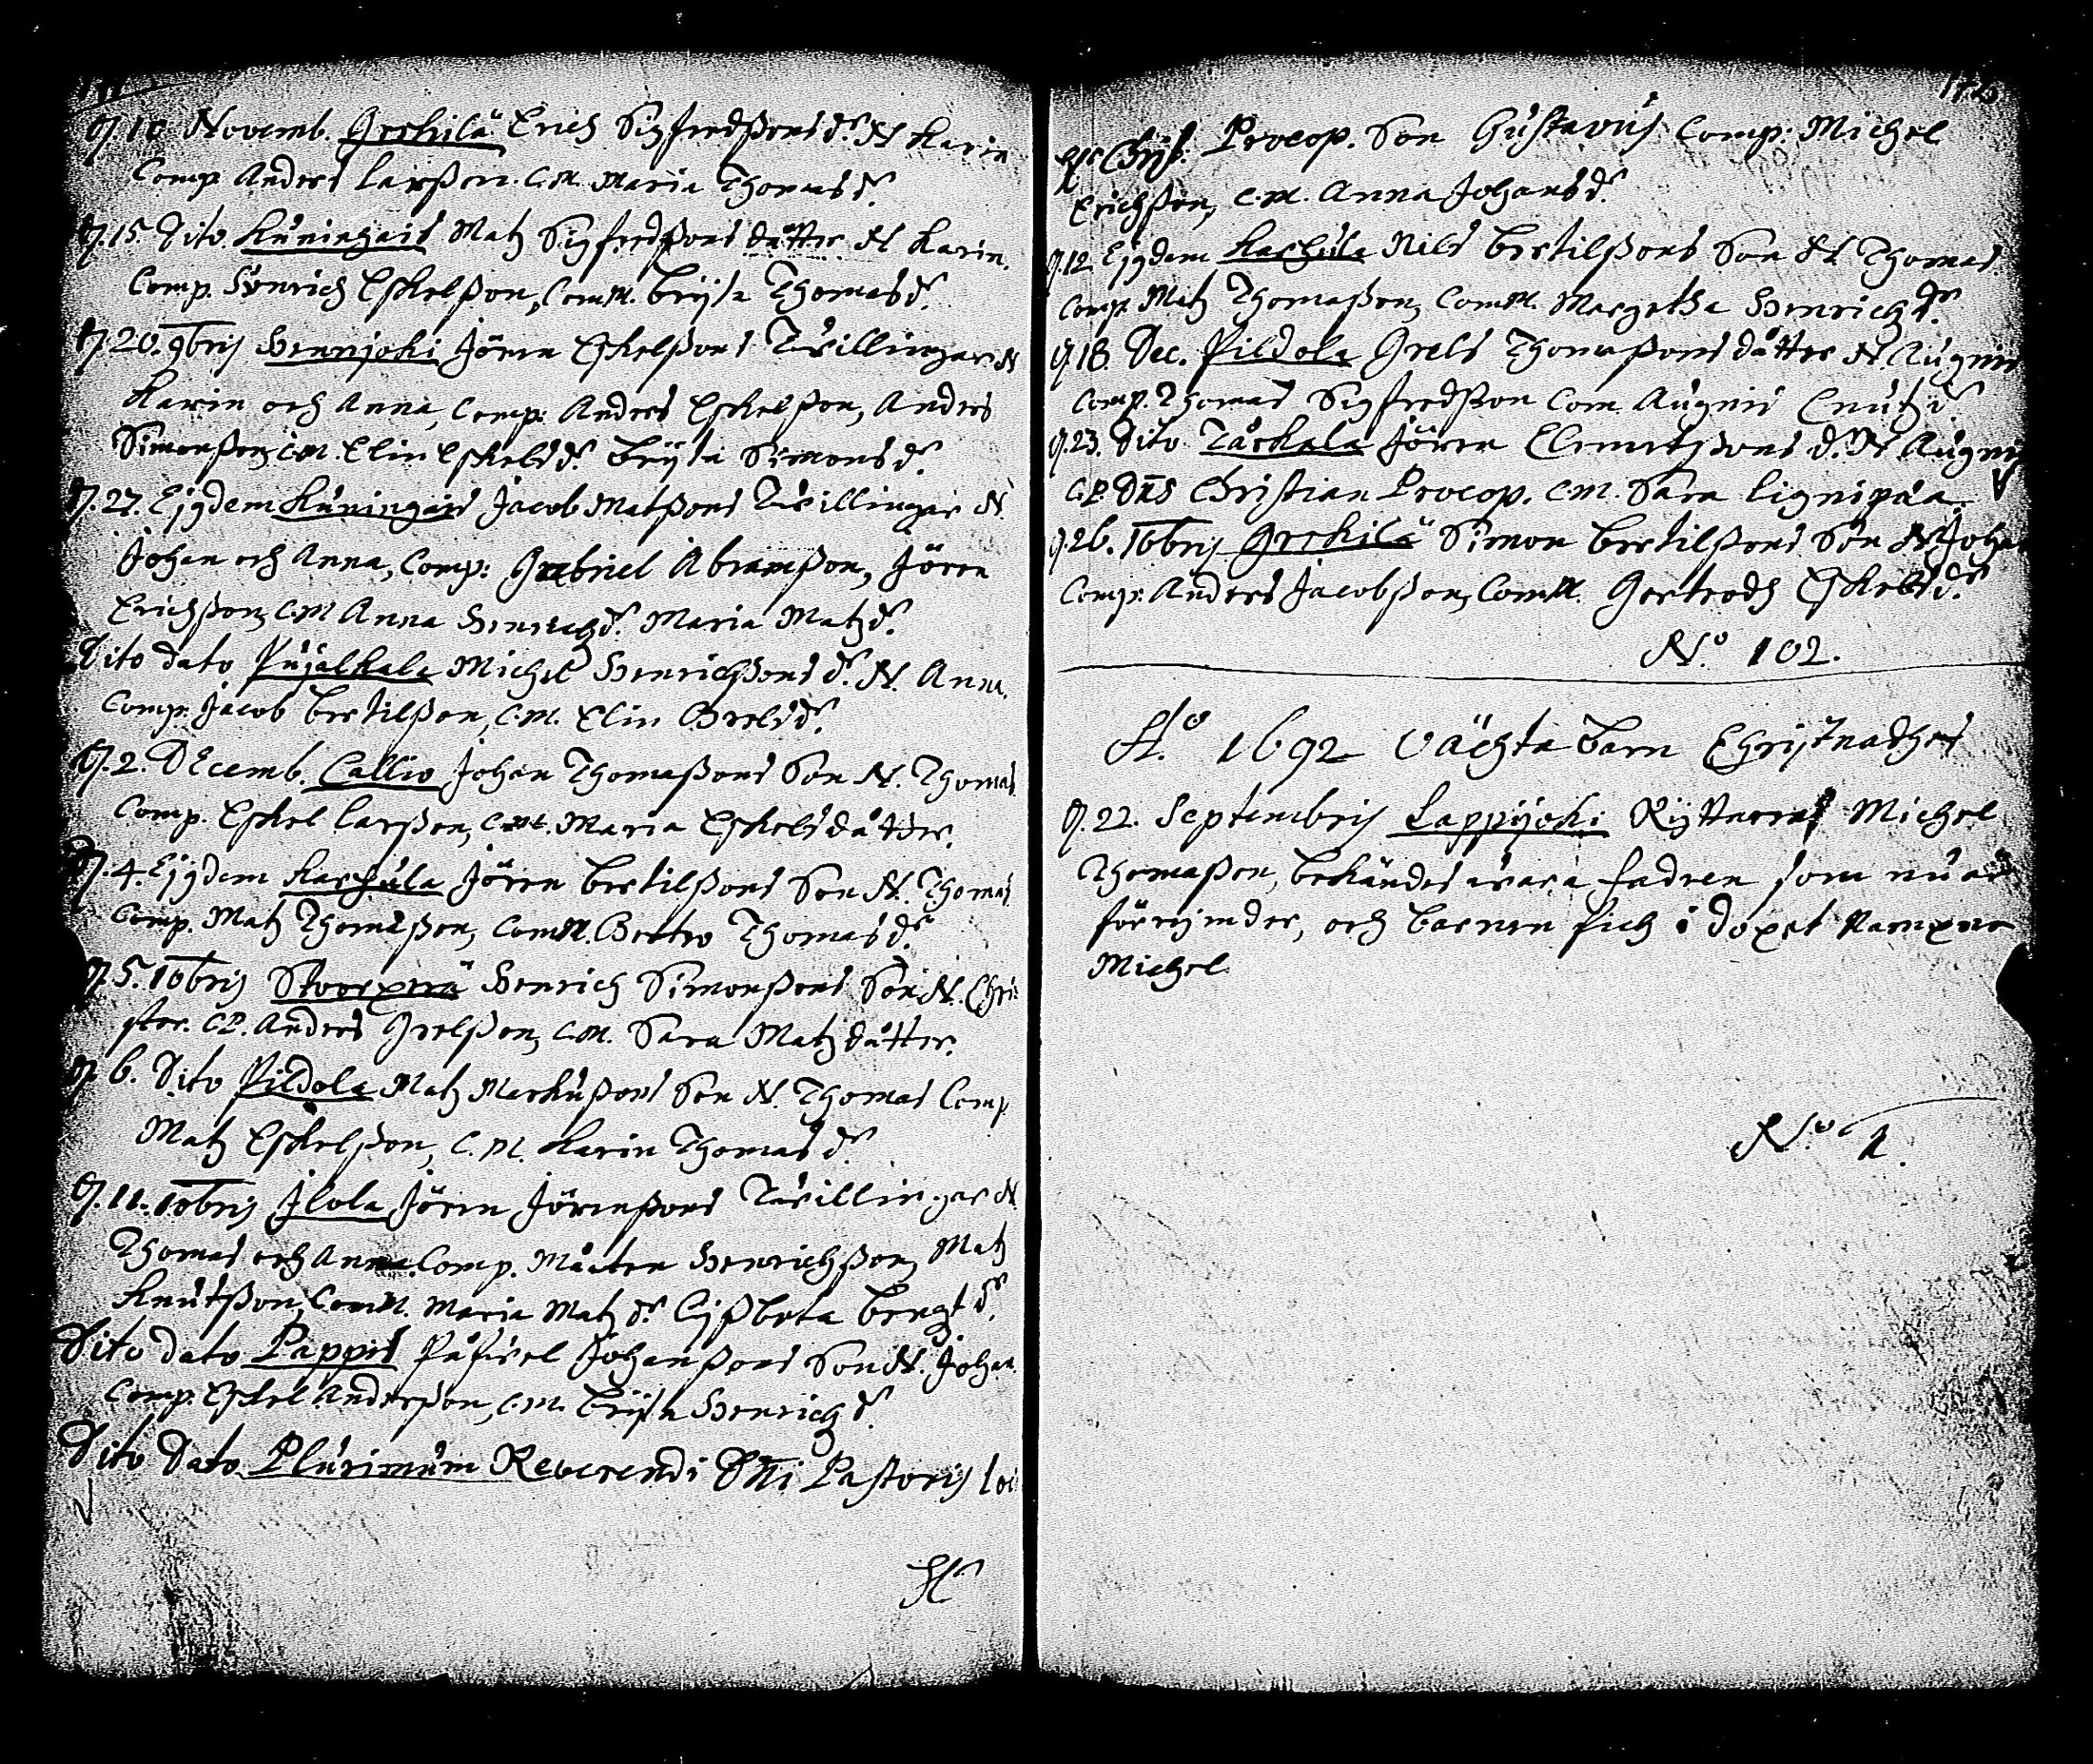 D. 10 Novemb. Grekilä Erich Sigfredßons d.r N Karin
Comp Anders Larßon. C.M. Maria Thomas d.r
D. 15. Dito Kuningais Matz Sigfredßons dåtter N Karin.
Comp. Hinrich Eskelßon, Com M. Brijta Thomas d.r
D. 20. 9bris Hennjoki Jören Eskelßons Twillingar N
Karin och Anna, Comp: Anders Eskelßon, Anders
Simonßon, C.M. Elin Eskels d.r Brijta Simons d.r
D. 27. Ejgdem Kuningais Jacob Matßons Twillingar N.
Johan och Anna, Comp: Gabriel Abramßon, Jören
Erichßon, C.M Anna Henrichz d.r Maria Matz d.r
Dito dato Pujalkala Michel Henrichßons d.r N. Anna.
Comp: Jacob Bertilßon, C.M. Elin Grels d.r
D. 2. Decemb. Callio Johan Thomaßons Son N. Thomas
Comp. Eskel Larßon, C.M. Maria Eskels dåtter.
D. 4. Ejgdem Karhula Jören Bertilßons Son N. Thomas
Comp. Matz Thomaßon, Com M. Thomas d.r
D. 5. 10bris Henrich Simonßons Son N. Chri:
ster. C.P. Anders Grelßon, C.M. Sara Matz dåtter.
D 6. Dito Pildola Matz Markußons Son N. Thomas Comp
Matz Eskelßon, C.M. Karin Thomas d.r
D. 11. 10bris Ilola Jören Jörenßons Twillingar N
Thomas och Anna. Comp. Mårten Henrichßon, Matz
Knutßon, Com M. Maria Matz d.r Lijßbeta Bengt d.r
Dito dato Pappis Påfwel Johanßons Son N. Johan
Comp. Eskel Anderßon, C.M. Brijta Henrichz d.r
Dito Dato Plurimum Reverendi Dñi Pastoris loci
Christ. Procop. Son Gustavus Comp: Michel
Erichßon, C.M. Anna Johans d.r
D. 12. Ejgdem Karhula Nils Bertilßons Son N Thomas.
Comp Matz Thomaßon, Com M. Margetha Henrichz d.r
D 18. Dec. Pildola Grels Thomaßons dåtter N. Augnis
Comp. Thomas Sigfredßon Com Augnis Cnutz d.r
D. 23. Dito Tarkala Jören Clemetßons d. N Augnis
C.P. Dñs Christian Procop. C.M. Sara Lignipæa
D. 26. 10bris Grekilä Simon Bertilßons Son N Johan
Comp: Anders Jacobßon, Com M. Gertrodh Eskels d.r
N.o 102.
A.o 1692 Oächta barn Christnadhes
D. 22. Septembris Lappijoki Ryttaren Michel
Thomaßon, bekändes wara fadren som nu är
förrijmder, och barnen fick i dopet Nampne
Michel
N.o 1.